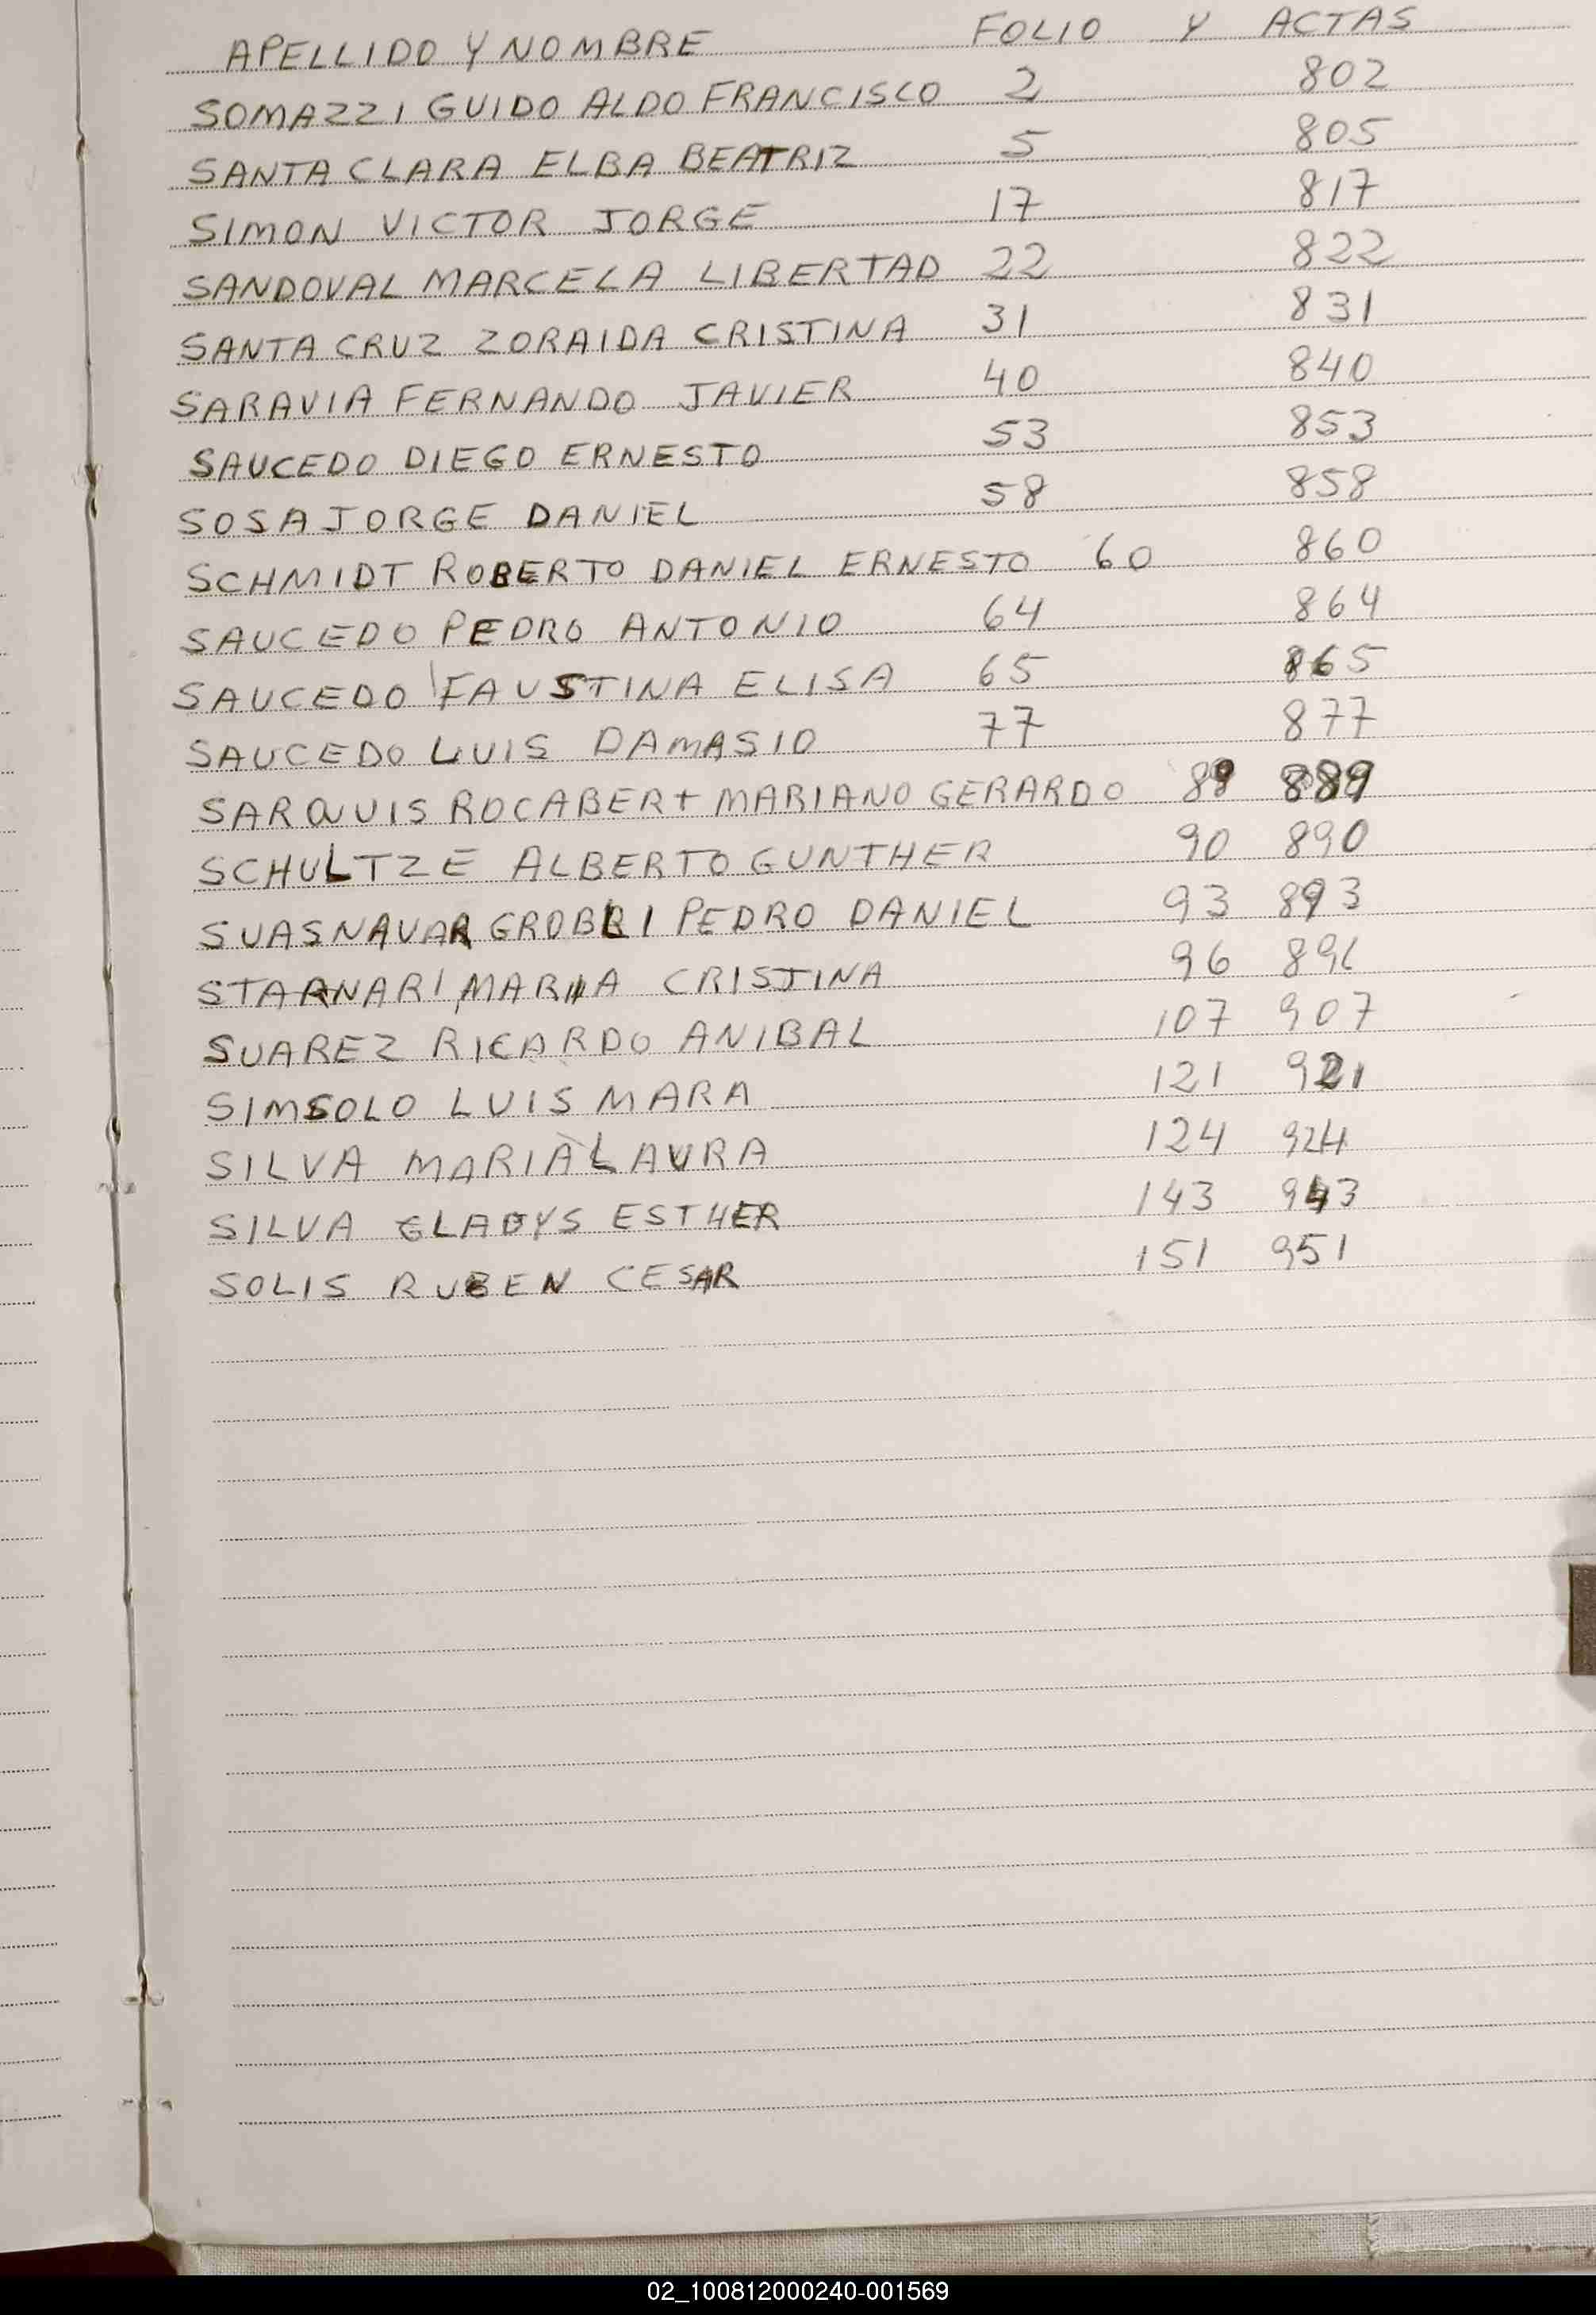 APELLIDO Y NOMBRE FOLIO Y ACTAS
SOMAZZI GUIDO ALDO FRANCISCO 2 802
SANTA CLARA ELBA BEATRIZ 5 805
SIMON VICTOR JORGE 17 817
SANDOVAL MARCELA LIBERTAD 22 822
SANTA CRUZ ZORAIDA CRISTINA 31 831
SARAVIA FERNANDO JAVIER 40 840
SAUCEDO DIEGO ERNESTO 53 853
SOSA JORGE DANIEL 58 858
SCHMIDT ROBERTO DANIEL ERNESTO 60 860
SAUCEDO PEDRO ANTONIO 64 864
SAUCEDO FAUSTINA ELISA 65 865
SAUCEDO LUIS DAMASIO 77 877
SARQUIS ROCABERT MARIANO GERARDO 89 889
SCHULTZE ALBERTO GUNTHER 90 890
SUASNAVAR PEDRO DANIEL 93 893
MARIA CRISTINA 96 896
SUAREZ RICARDO ANIBAL 107 907
SIMSOLO LUIS MARA 121 921
SILVA MARIA LAURA 124 924
SILVA GLADYS ESTHER 143 943
SOLIS RUBEN CESAR 151 951
02_100812000240-001569